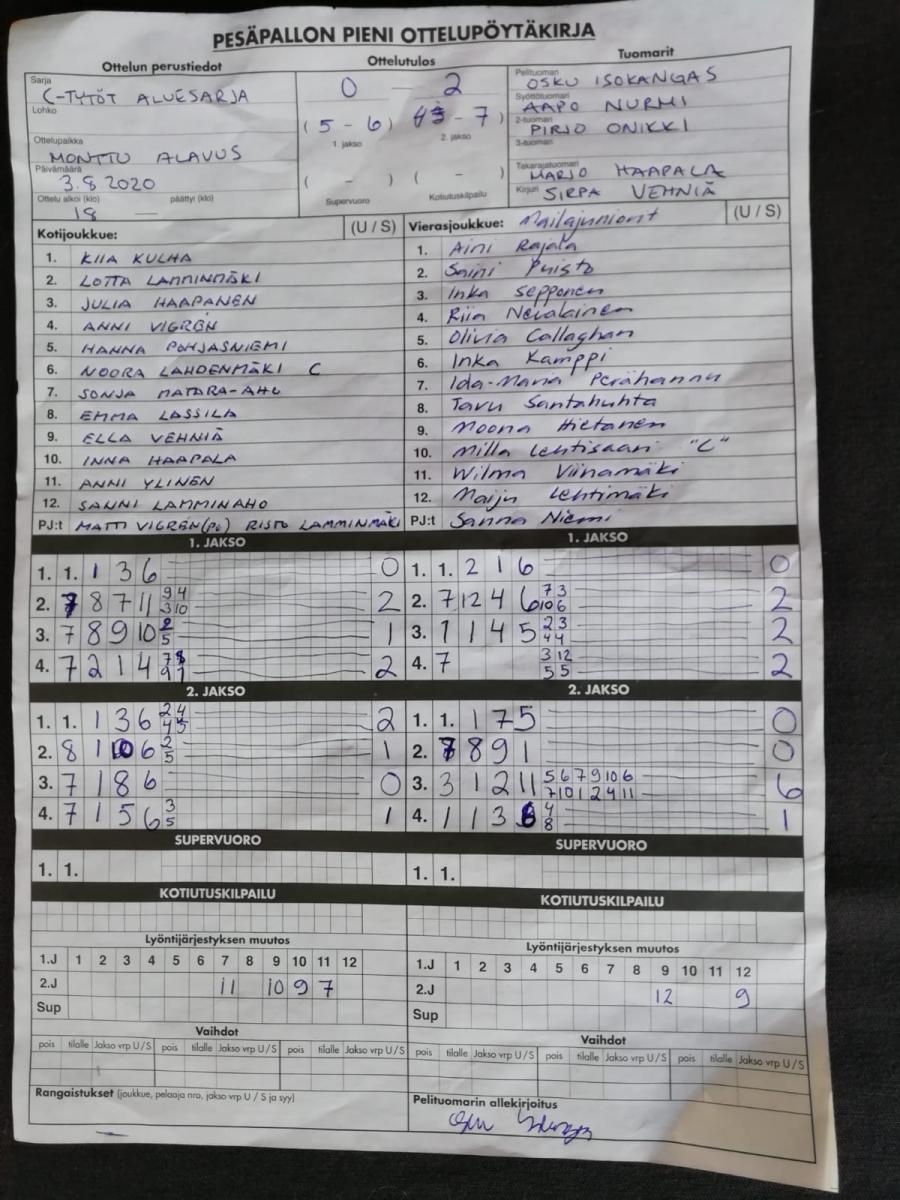 PESÄPALLON PIENI OTTELUPÖYTÄKIRJA
Ottelun perustiedot
Sarja
C-TYTÖT ALUESARJA
Lohko
Ottelupaikka
MONTTU ALAVUS
Päivämäärä
3.8.2020
Ottelu alkoi (klo) päättyi (klo)
18 —
Ottelutulos
0 — 2
(5 - 6) - 7)
1. jakso 2. jakso
( - ) ( - )
Supervuoro Kotiutuskilpailu
Tuomarit
Pelituomari
OSKU ISOKANGAS
Syöttötuomari
AAPO NURMI
2-tuomari
PIRJO ONIKKI
3-tuomari
Takarajatuomari
MARJO HAAPALA
Kirjuri
SIRPA VEHNIÄ
Kotijoukkue: (U / S)
1. KIIA KULHA
2. LOTTA LAMMINMÄKI
3. JULIA HAAPANEN
4. ANNI VIGREN
5. HANNA POHJASNIEMI
6. NOORA LAHDENMÄKI C
7. SONJA MATARA-AHO
8. EMMA LASSILA
9. ELLA VEHNIÄ
10. INNA HAAPALA
11. ANNI YLINEN
12. SANNI LAMMINAHO
PJ:t MATTI VIGREN RISTO LAMMINMÄKI
Vierasjoukkue: Mailajuniorit (U / S)
1. Aini Rajala
2. Saini Puisto
3. Inka Sepponen
4. Riia Nevalainen
5. Olivia Callaghan
6. Inka Kamppi
7. Ida-Maria Perähannu
8. Taru Santahuhta
9. Moona Hietanen
10. Milla Lehtisaari "C"
11. Wilma Viinamäki
12. Maiju Lehtimäki
PJ:t Sanna Niemi
1. JAKSO
1. 1. 1 3 6 0
2. 7 8 7 11 9 4 3 10 2
3. 7 8 9 10 2 5 1
4. 7 2 1 4 7 8 9 1 2
2. JAKSO
1. 1. 1 3 6 2 4 4 5 2
2. 8 1 10 6 2 5 1
3. 7 1 8 6 0
4. 7 1 5 6 3 5 1
SUPERVUORO
1. 1.
KOTIUTUSKILPAILU
1. JAKSO
1. 1. 2 1 6 0
2. 7 12 4 6 7 3 10 6 2
3. 1 1 4 5 2 3 4 4 2
4. 7 3 12 5 5 2
2. JAKSO
1. 1. 1 7 5 0
2. 7 8 9 1 0
3. 3 1 2 11 5 6 7 9 10 6 7 10 1 2 4 11 6
4. 1 1 3 6 4 8 1
SUPERVUORO
1. 1.
KOTIUTUSKILPAILU
Lyöntijärjestyksen muutos
1.J 1 2 3 4 5 6 7 8 9 10 11 12
2.J 11 10 9 7
Sup
Vaihdot
pois tilalle Jakso vrp U / S pois tilalle Jakso vrp U / S pois tilalle Jakso vrp U / S
Rangaistukset (joukkue, pelaaja nro, jakso vrp U / S ja syy)
Lyöntijärjestyksen muutos
1.J 1 2 3 4 5 6 7 8 9 10 11 12
2.J 12 9
Sup
Vaihdot
pois tilalle Jakso vrp U / S pois tilalle Jakso vrp U / S pois tilalle Jakso vrp U / S
Pelituomarin allekirjoitus